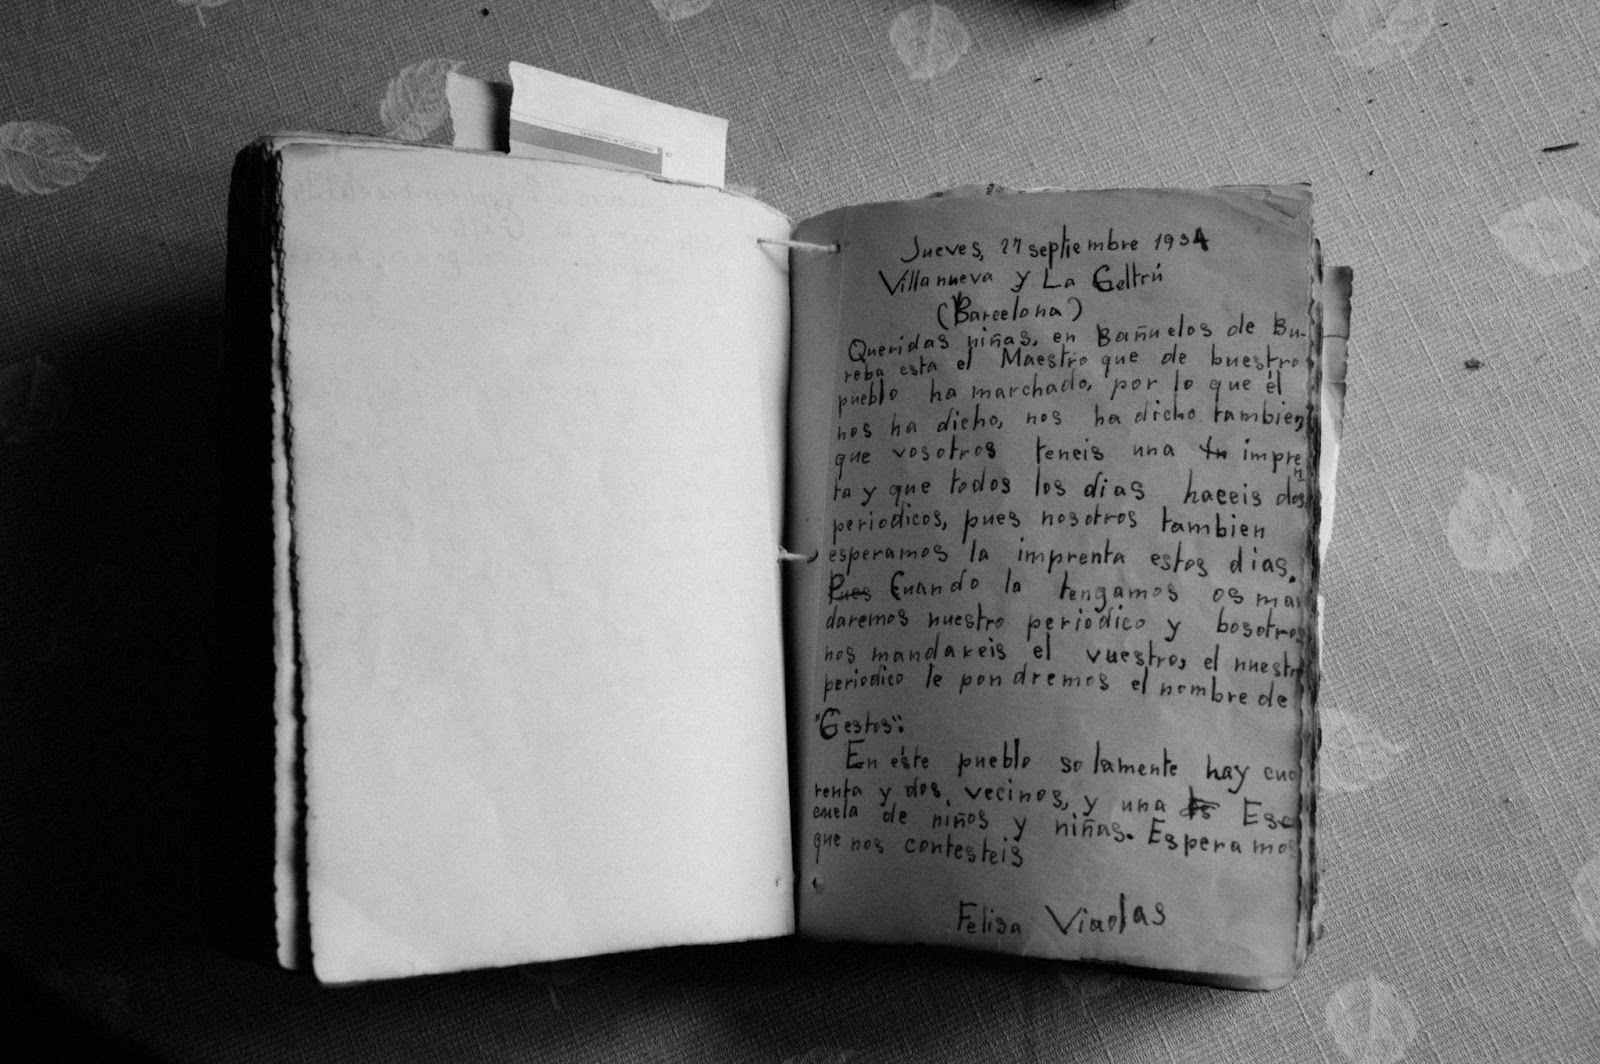 La economía de Castilla y León
Jueves, 27 septiembre 1934
Villanueva y La Geltrú
(Barcelona)
Queridas niñas, en Bañuelos de Bu-
reba esta el Maestro que de buestro
pueblo ha marchado, por lo que él
nos ha dicho, nos ha dicho tambien,
que vosotros teneis una im impren
ta y que todos los dias haceis dos
periodicos, pues nosotros tambien
esperamos la imprenta estos dias.
Pues Cuando la tengamos os man
daremos nuestro periodico y bosotros
nos mandareis el vuestro, el nuestro
periodico le pondremos el nombre de
"Gestos".
En éste pueblo solamente hay cua
renta y dos vecinos, y una Es Esc
cuela de niños y niñas. Esperamos
que nos contesteis
Felisa Viadas